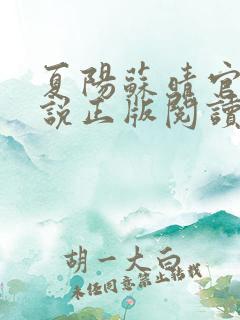 夏陽蘇晴官
說正版閱讀
胡一大白
未经同意禁止转载